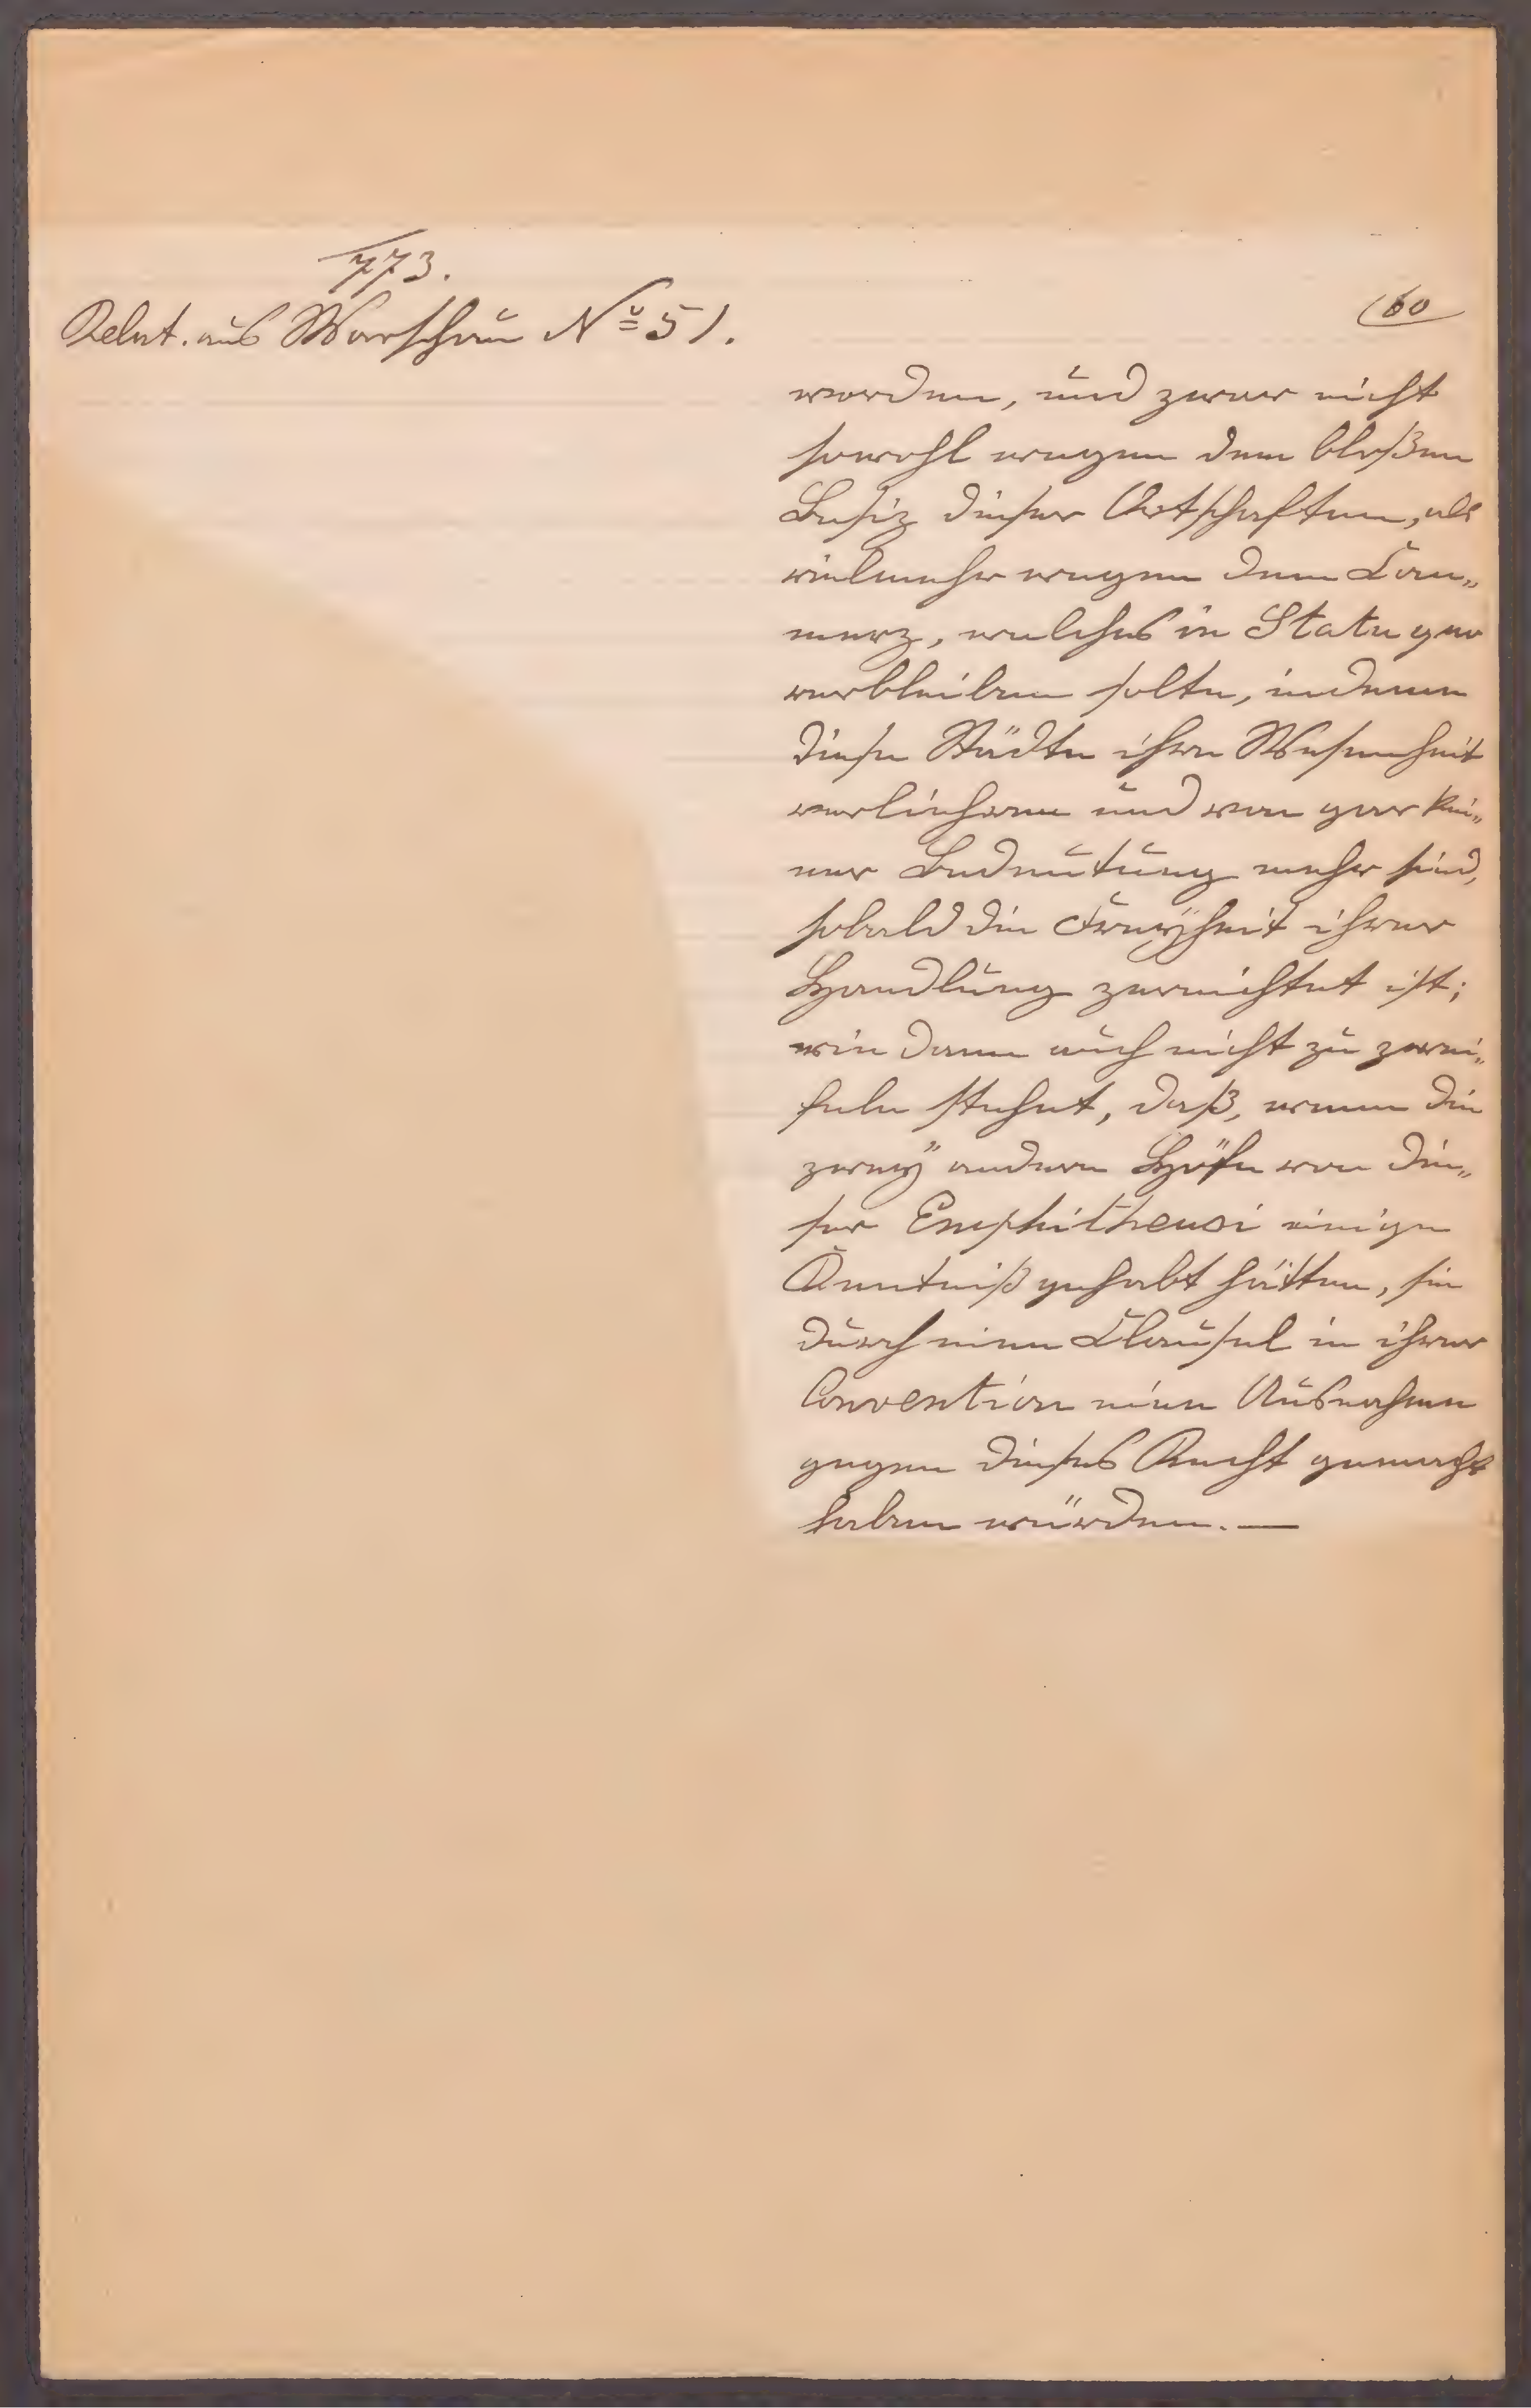 773.
Relat. aus Warschau No 51.
60
worden, und zwar nicht
sowohl wegen dem bloßen
Besiz dieser Ortschaften, als
vielmehr wegen dem Com„
merz, welches in Statu quo
verbleiben solte, indeme
diese Städte ihre Wesenheit
verliehren und von gar kei„
ner Bedeutung mehr sind,
sobald die Freyheit ihrer
Handlung zernichtet ist;
wie dann auch nicht zu zwei„
feln stehet, daß, wenn die
zwey andere Höfe von die„
ser Emphitheusi einige
Kenntniß gehabt hätten, sie
durch eine Clausel in ihrer
Convention eine Ausnahme
gegen dieses Recht gemacht
haben würden. —